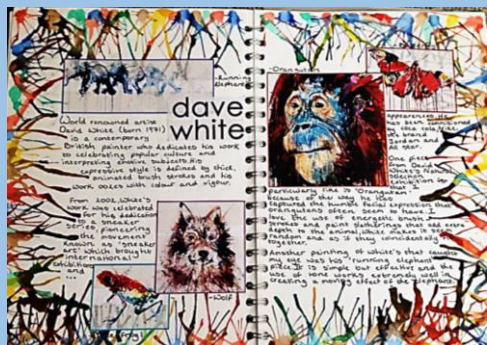 -Running
elephant
dave
white
World renowned artist
David White (born 1971)
is a contemporary
British painter who dedicates his work
to celebrating popular culture and
interpreting emotive subjects. His
expressive style is defined by thick,
animated brush strokes and his
work oozes with colour and vigour.
From 2002, White's
work was celebrated
for his dedication
to a sneaker
series, pioneering
the movement
known as 'sneaker
art' which brought
international
exhibitions
and
...
-Wolf
-Orangutan
appearances. He
has been commissioned
by Coca Cola, Nike,
the brand
Jordan and
AOL.
One piece
from David
White's Natural
Selection
exhibition is
that I
particularly like is 'Orangutan'
because of the way he has
captured the humble facial expression that
orangutans often seem to have. I
love the use of energetic brush
strokes and paint splatterings that add extra
depth to the animal, makes it so
random and as if they coincidently
together.
Another painting of White's that caught
my eye was his 'running elephant'
piece. It is simple but effective and the
use of works extremely well in
creating a moving effect of the elephants.